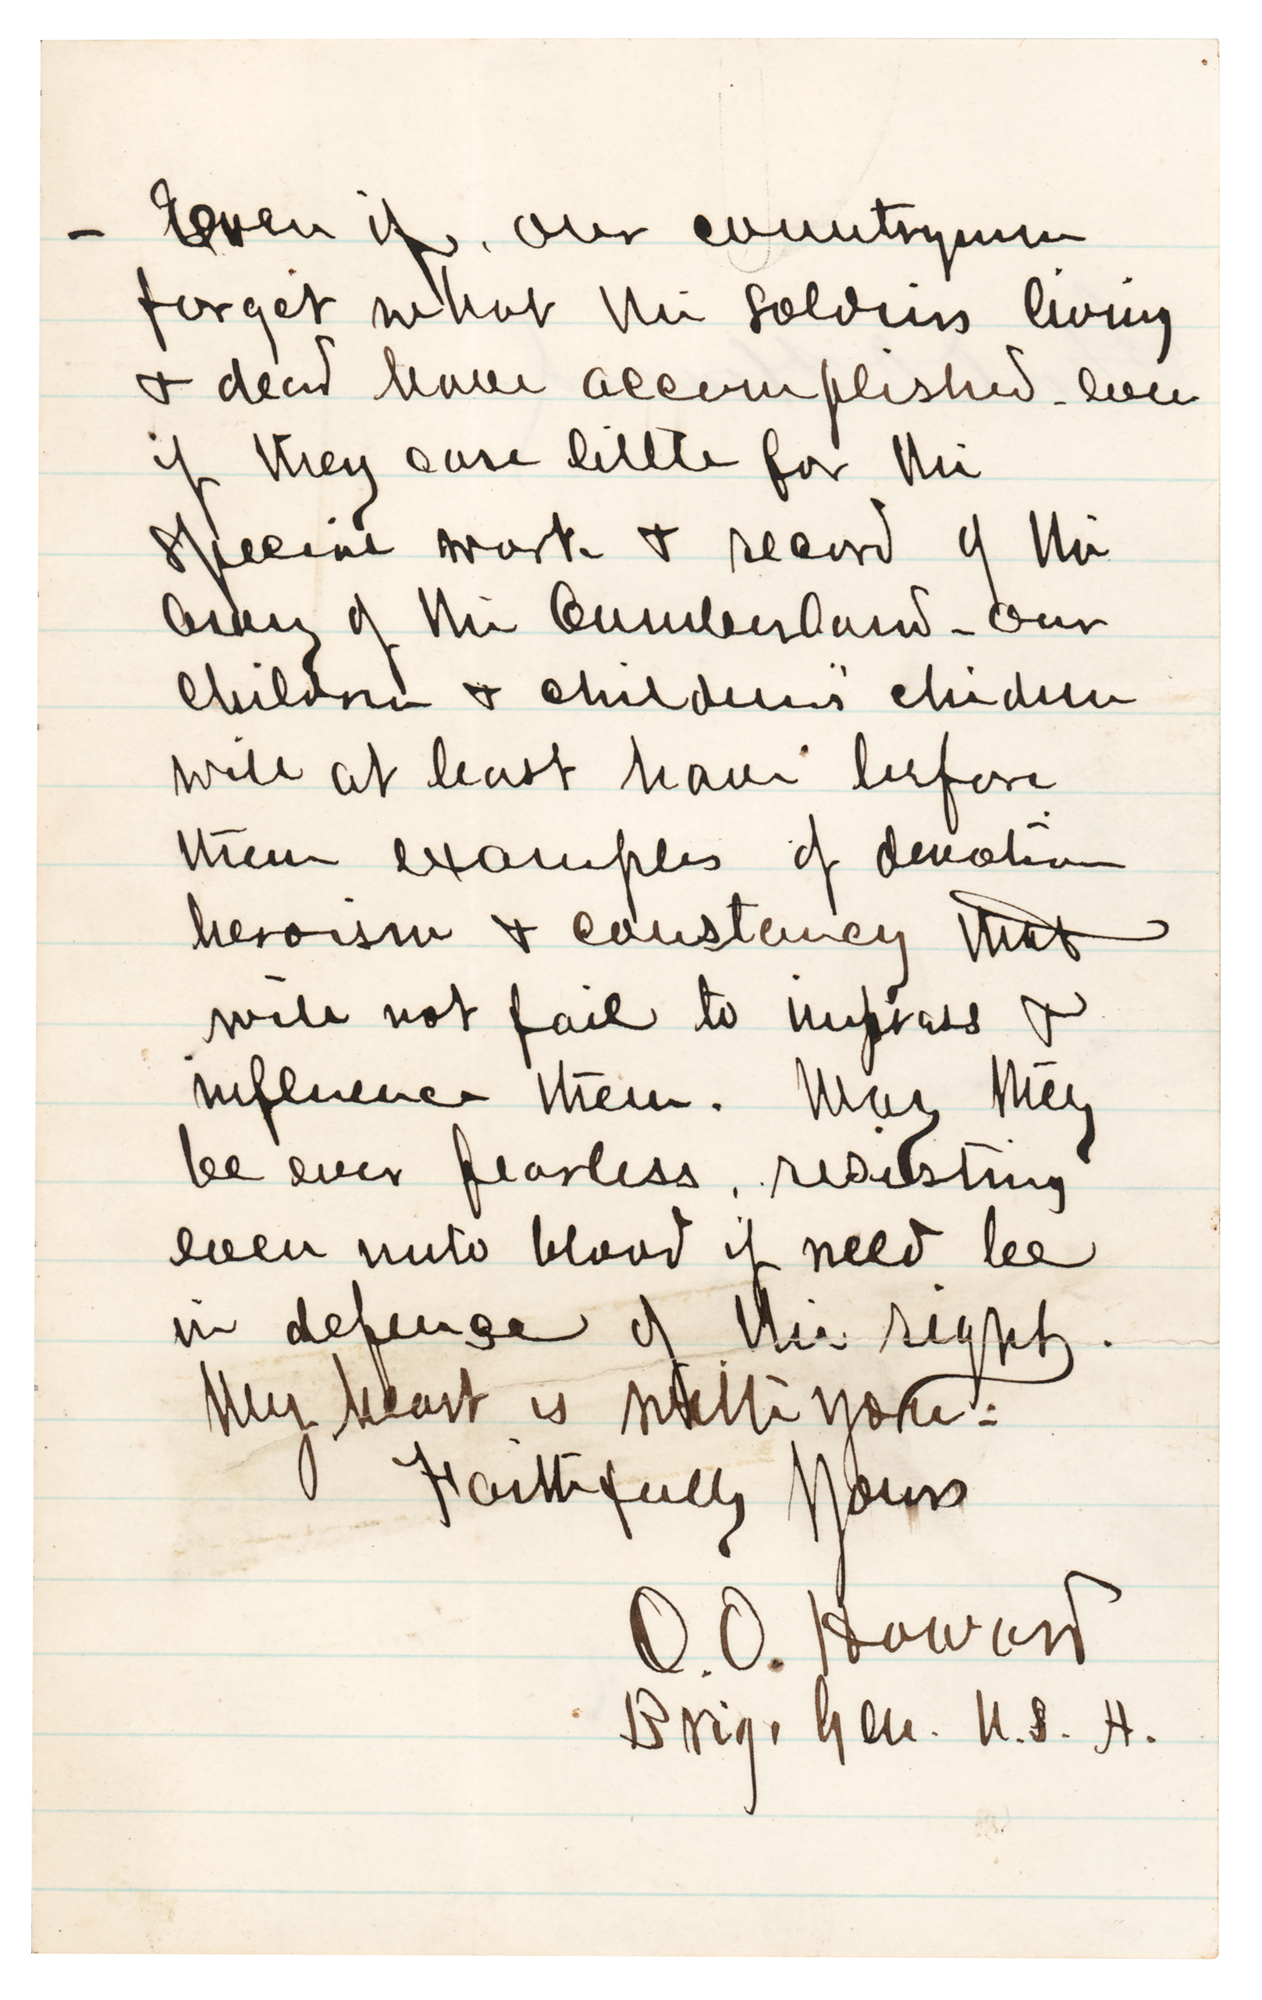 - Even if, our countrymen
forget what the soldiers living
& dead have accomplished - even
if they care little for the
special work & record of the
Army of the Cumberland - our
children & children's children
will at least have before
them examples of devotion
heroism & constancy that
will not fail to impress &
influence them. May they
be ever fearless, resisting
even unto blood if need be
in defense of the right.
My heart is with you -
Faithfully Yours
O. O. Howard
Brig. Gen. U.S.A.